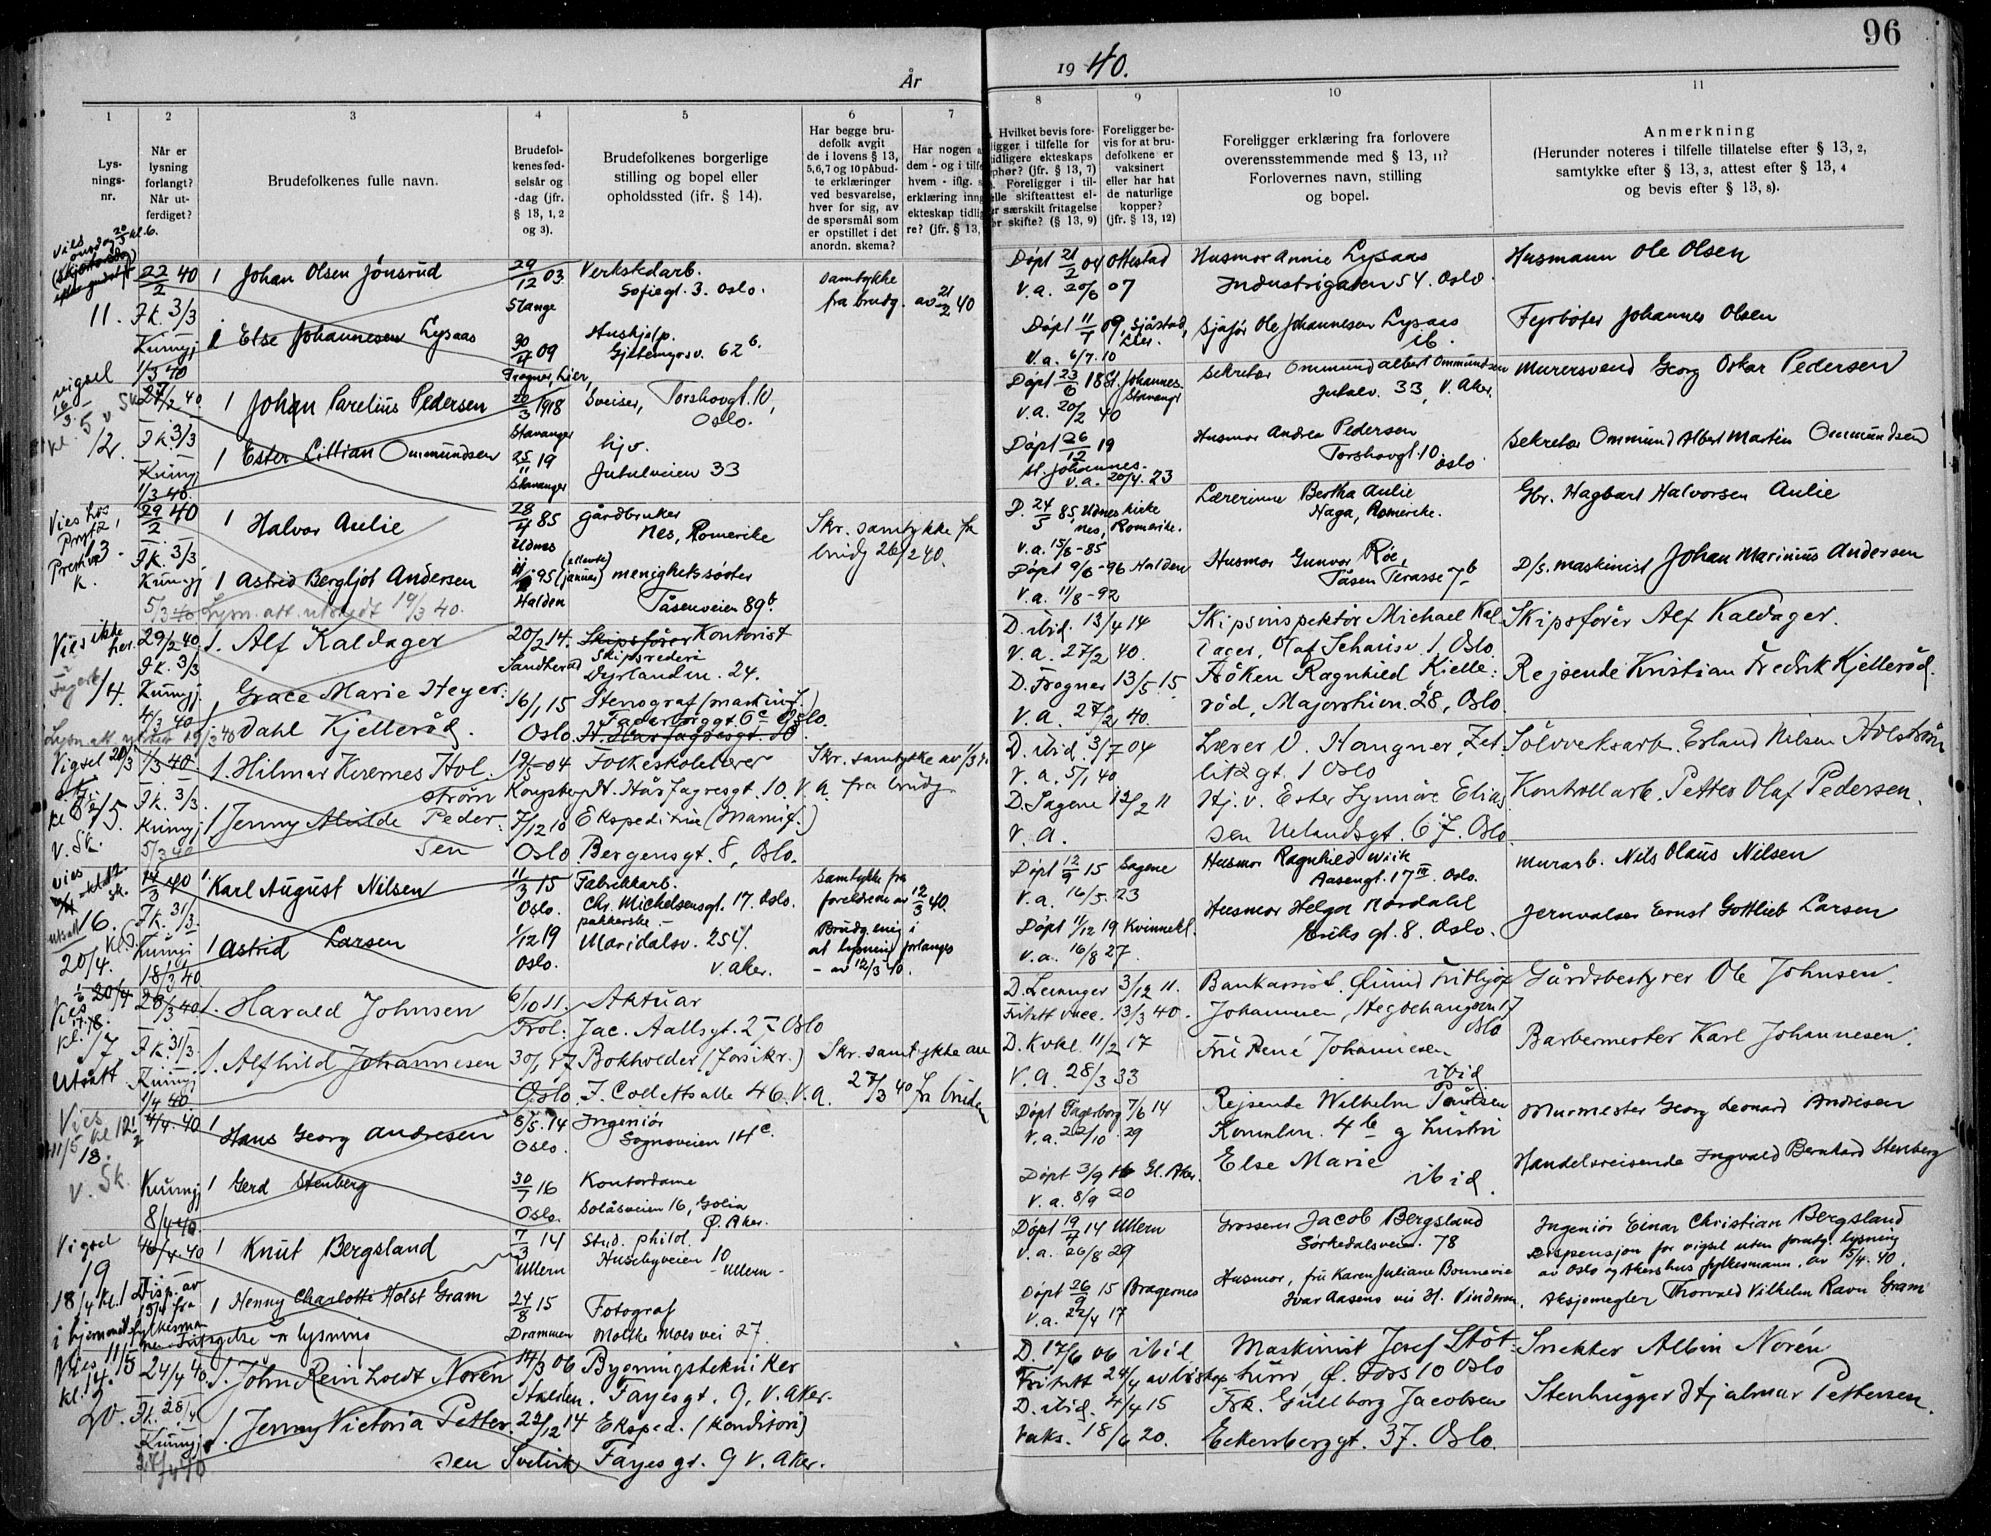 96
År
19 40.
1
2
3
4
5
6
7
8
9
10
11
Lys-
nings-
nr.
Når er
lysning
forlangt?
Når ut-
ferdiget?
Brudefolkenes fulle navn.
Brudefol-
kenes fød-
selsår og
-dag (jfr.
§ 13, 1, 2
og 3).
Brudefolkenes borgerlige
stilling og bopel eller
opholdssted (ifr. § 14).
Har begge bru-
defolk avgit
de i lovens § 13,
5,6,7 og 10 påbud-
te erklæringer
ved besvarelse,
hver for sig, av
de spørsmål som
er opstillet i det
anordn. skema?
Har nogen a
dem - og i tilfe
hvem - iflg. s
erklæring inng
ekteskap tidlig
re? (jfr. § 13,
Hvilket bevis fore-
ligger i tilfelle for
tidligere ekteskaps
ophør? (jfr. § 13, 7)
Foreligger i til-
felle skifteattest el-
er særskilt fritagelse
r skifte? (§ 13, 9)
Foreligger be-
vis for at bru-
defolkene er
vaksinert
eller har hat
de naturlige
kopper?
(jfr. § 13, 12)
Foreligger erklæring fra forlovere
overensstemmende med § 13, 11?
Forlovernes navn, stilling
og bopel.
Anmerkning
(Herunder noteres i tilfelle tillatelse efter § 13, 2,
samtykke efter § 13, 3, attest efter § 13, 4
og bevis efter § 13, 8).
11.
22/2 40
Fk. 3/3
Kunngj
1/3 40
1 Johan Olsen Jönsrud
29/12 03
Stange
Verkstedarb.
Sofiegt. 3. Oslo.
samtykke
fra brudg. av 21/2 40
Döpt 21/2 04 Ottestad
V.a. 20/6 07
Husmor Annie Lysaas
Industrigaten 54. Oslo.
Husmann Ole Olsen
1 Else Johannesen Lysaas
30/4 09
Frogner, Lier,
Hushjelp.
62 b.
Döpt 11/7 09, Sjåstad,
Lier.
V.a. 6/7. 10
Sjåfør Ole Johannesen Lysaas
ib.
Fyrbøter Johannes Olsen
Vigsel
16/3
kl. 5 v Sk.
12.
27/2 40
Fk. 3/3
Kunngj
1/3 40.
1 Johan Parelius Pedersen
20/3 1918
Stavanger
Sveiser, Torshovgt. 10,
Oslo.
Döpt 23/6 18 St. Johannes.
Stavangr
V.a. 20/2 40
Sekretær Ommund Albert Ommundsen
Jutulv. 33, V. Aker.
Murersvend Georg Oskar Pedersen
1 Ester Lillian Ommundsen
25/11 19
Stavanger
hjv.
Jutulveien 33
Döpt 26/12 19
St. Johannes.
V.a. 20/4. 23
Husmor Andrea Pedersen
Torshovgt. 10.
Oslo
Sekretær Ommund Albert Martin Ommundsen
Vies hos
13.
29/2 40
Fk. 3/3
Kunngj
5/3 40
1 Halvor Aulie
28/4 85
Udnes
Gårdbruker
Nes, Romerike
Skr. samtykke fr
brudg 26/2 40.
D. 24/5 85, Udnes kirke
Nes, Romerike.
V.a. 15/8 - 85
Lærerinne Bertha Aulie
Haga, Romerike.
Gbr. Hagbart Halvorsen Aulie
1 Astrid Bergljot Andersen
Lysn. att. utstedt 19/3 40.
95
Halden
menighetssöster
Tåsenveien 89 b.
Döpt 9/6 - 96 Halden
V.a. 11/8 - 92
Husmor Gunvor Röe,
Tåsen Terasse 7 b
D/s. maskinist Johan Marinius Andersen
Vies ikke
her.
14.
29/2 40.
Fk. 3/3
Kunngj.
4/3 40
1. Alf Kaldager
20/2 14.
Sandherad
Skipsfører Kontorist
Skipsrederi
Dyrlandsv. 24.
D. ibid. 13/4 14
V.a. 27/2 40.
Skipsinspektør Michael Kal
dager, Olaf Schousv. 1 Oslo.
Skipsfører Alf Kaldager.
Grace Marie Heyer-
dahl Kjelleröd.
16/1 15
Oslo.
Stenograf (maskinf.)
Fagerborggt. 6 c Oslo.
D. Frogner 13/5 15
V.a. 27/2 40.
Fröken Ragnhild Kjelle-
röd, Majorstuvn. 28, Oslo
Rejsende Kristian Fredrik Kjelleröd.
Vigsel 20/3
15.
V. Sk.
1/3 40
Fk. 3/3.
Kunngj
5/3 40
1. Hilmar Kirernes Hol-
ström
19/5 04
Kongsberg
Folkeskolelærer
H. Hårfagresgt. 10. V.A.
Skr. samtykke av 1/3
fra brudg
D. ibid. 3/7 04
V.a. 5/1 40
Lærer V. Hangner, Zet
litzgt. 1 Oslo
Sölvverksarb. Erland Nilsen Holström
1. Jenny Alvilde Peder-
sen
7/12 10
Oslo
Ekspeditrise (Manuf.)
Bergensgt. 8, Oslo.
D. Sagene 12/2 11
V.a.
Hj.v. Ester Synnöve Elias
sen Uelandsgt. 67. Oslo
Kontrollarb. Petter Olaf Pedersen.
vies
utsatt
16.
20/4.
14/3 40
Fk. 31/3
Kunngj
18/3 40
1. Karl August Nilsen
11/3 15
Oslo.
Fabrikkarb.
Chr. Michelsensgt. 17. Oslo.
samtykke fra
foreldrene av 12/3 40.
Döpt 12/9 15 Sagene
V.a. 16/5. 23
Husmor Ragnhild Wiik
Aasengt. 17 III. Oslo.
Murarb. Nils Olaus Nilsen
1 Astrid Larsen
1/12 19
Oslo.
pakkerske.
Maridalsv. 254.
V. Aker.
Brudg. enig i
at lysning forlanges
- av 12/3 40.
Döpt 11/12 19 Kvinnekl.
V.a. 16/8 27.
Husmor Helga Nordahl
Eriks gt. 8. Oslo.
Jernvalser Ernst Gottlieb Larsen
Vies 20/4
17.
Utsått
28/3 40.
Fk. 31/3.
Kunngj
1/4 40
1. Harald Johnsen
6/10 11.
Aktuar
Jac. Aallsgt. 2 Oslo
D. Levanger 3/12 11.
Fritatt vacc. 13/3 40.
Bankassist. Öivind Frithjof
Johannesen, Hegdehaugsvn 17
Oslo
Gårdsbestyrer Ole Johnsen.
1. Alfhild Johannesen
30/1 17
Oslo.
Bokholder (forsikr.)
J. Colletts alle 46. V.a.
Skr. samtykke av
27/3 40 fr bruden
D. Kvkl. 11/2 17
V.a. 28/3 33
Fru René Johannesen
ibid
Barbermester Karl Johannesen.
Vies
11/5 kl 12 1/2
18.
V. Sk.
4/4. 40
Kunngj
8/4 40.
1 Hans Georg Andresen
8/5. 14
Oslo.
Ingeniör
Sognsveien 14 c.
Döpt Fagerborg 7/6 14
V.a. 22/10. 29
Rejsende Wilhelm Poulsen
4 b og hustru
Murmester Georg Leonard Andresen
1 Gerd Stenberg
30/7 16
Oslo.
Kontordame
Solåsveien 16, Golia
Ö. Aker.
Döpt 3/9 16 Gl. Aker.
V.a. 8/9 20
Else Marie
ibid.
Handelsreisende Ingvald Bernhard Stenberg
Vigsel
19
18/4 kl. 1
i hjemmet.
16/4. 40
Disp. av
15/4 fra
fylkesman
nen. Fritagelse fr lysning
1 Knut Bergsland
7/3 14
Ullern
Stud. philol.
Husebyveien 10
Ullern
Döpt 19/7 14 Ullern
V.a. 26/8 29
Grosserer Jacob Bergsland
Sörkedalsveien. 78
Ingeniör Einar Christian Bergsland
Dispensasjon for vigsel uten forutg. lysning
av Oslo og Akershus fylkesmann, av 15/4. 40.
1 Henny Charlotte Holst Gram
24/8 15
Drammen
Fotograf
Moltke Moes vei 27.
Döpt 26/9 15 Bragernes
V.a. 22/4 17
Husmor, fru Karen Juliane Bonnevie
Ivar Aasens vei 14. Vinderen.
Aksjemegler Thorvald Vilhelm Ravn Gram
Vies 11/5
kl. 14.
20.
24/4 40.
Fk. 28/4
Kunngj.
1. John Reinholdt Norén
14/3 06
Halden.
Bygningstekniker
Fayesgt. 9, V. Aker.
D. 17/6 06 ibid
Fritatt 24/4 av biskop
Maskinist Josef Stöt-
Ö. Foss 10 Oslo
Snekker Albin Norén
1. Jenny Victoria Petter-
sen
22/12 14
Svelvik
Eksped. (konditori)
Fayesgt. 9 V. Aker.
D. ibid. 4/4 15
Vaks. 18/6 20.
Frk. Gullborg Jacobsen
Eckersberggt. 37. Oslo.
Stenhugger Hjalmar Pettersen.